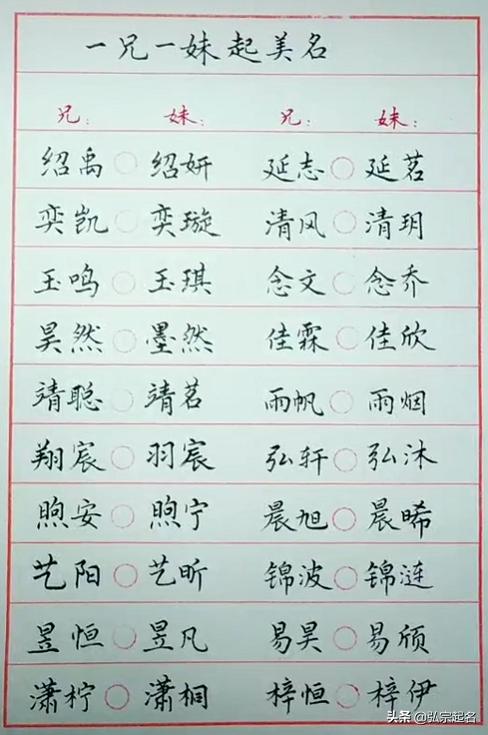 一兄一妹起美名
兄: 妹: 兄: 妹:
绍禹○绍妍 延志○延茗
奕凯○奕璇 清风○清玥
玉鸣○玉琪 念文○念乔
昊然○墨然 佳霖○佳欣
靖聪○靖茗 雨帆○雨烟
翔宸○羽宸 弘轩○弘沐
煦安○煦宁 晨旭○晨晞
艺阳○艺昕 锦波○锦涟
昱恒○昱凡 易昊○易颀
潇柠○潇桐 梓恒○梓伊
头条 @弘宗起名